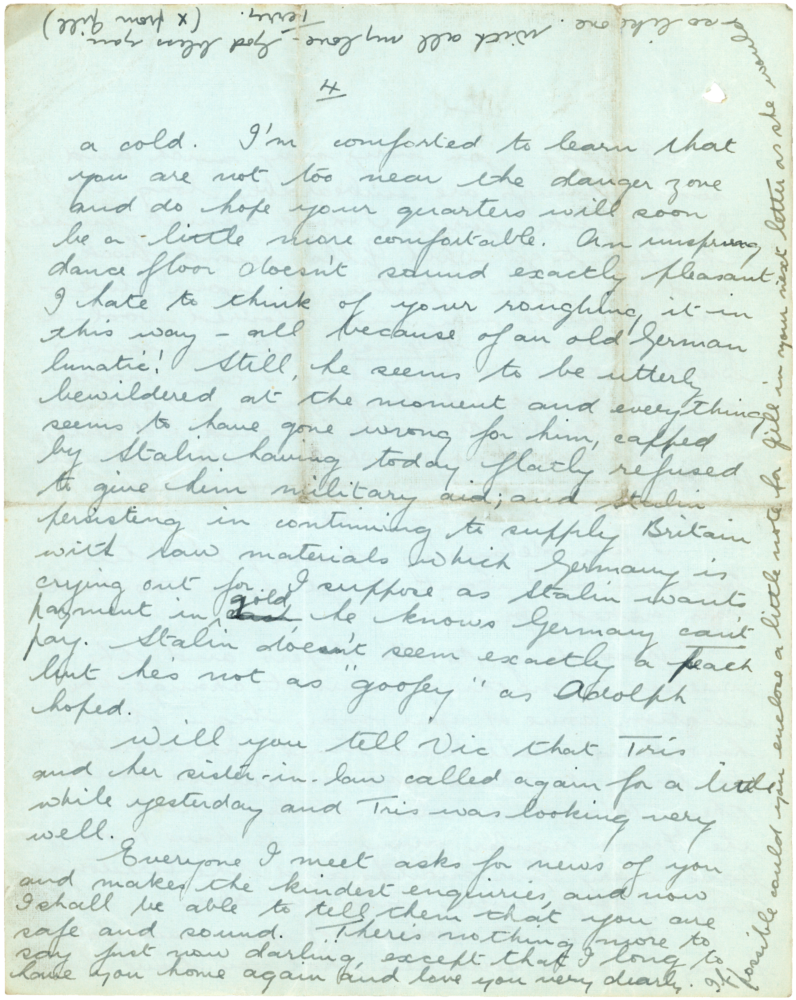 4
a cold. I'm comforted to learn that
you are not too near the danger zone
and do hope your quarters will soon
be a little more comfortable. An unsprung
dance floor doesn't sound exactly pleasant.
I hate to think of your roughing it in
this way – all because of an old German
lunatic! Still, he seems to be utterly
bewildered at the moment and everything
seems to have gone wrong for him, capped
by Stalin having today flatly refused
to give him military aid; and Stalin
persisting in continuing to supply Britain
with raw materials which Germany is
crying out for. I suppose as Stalin wants
payment in gold he knows Germany can't
pay. Stalin doesn't seem exactly a peach
but he's not as "goofey" as Adolph
hoped.
Will you tell Vic that Tris
and her sister-in-law called again for a little
while yesterday and Tris was looking very
well.
Everyone I meet asks for news of you
and makes the kindest enquiries, and now
I shall be able to tell them that you are
safe and sound. There's nothing more to
say just now darling, except that I long to
have you home again and love you very dearly. If
possible could you enclose a little note for Jill in your next letter as she would
so like one. With all my love – God bless you
Terry. (x from Jill)